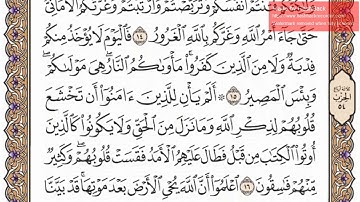 وَلَٰكِنَّكُمْ فَتَنتُمْ أَنفُسَكُمْ وَتَرَبَّصْتُمْ وَٱرْتَبْتُمْ وَغَرَّتْكُمُ ٱلْأَمَانِىُّ
حَتَّىٰ جَآءَ أَمْرُ ٱللَّهِ وَغَرَّكُم بِٱللَّهِ ٱلْغَرُورُ ١٤ فَٱلْيَوْمَ لَا يُؤْخَذُ مِنكُمْ
فِدْيَةٌ وَلَا مِنَ ٱلَّذِينَ كَفَرُوا۟ ۚ مَأْوَىٰكُمُ ٱلنَّارُ ۖ هِىَ مَوْلَىٰكُمْ ۖ
وَبِئْسَ ٱلْمَصِيرُ ١٥ ۞ أَلَمْ يَأْنِ لِلَّذِينَ ءَامَنُوٓا۟ أَن تَخْشَعَ
قُلُوبُهُمْ لِذِكْرِ ٱللَّهِ وَمَا نَزَلَ مِنَ ٱلْحَقِّ وَلَا يَكُونُوا۟ كَٱلَّذِينَ
أُوتُوا۟ ٱلْكِتَٰبَ مِن قَبْلُ فَطَالَ عَلَيْهِمُ ٱلْأَمَدُ فَقَسَتْ قُلُوبُهُمْ ۖ وَكَثِيرٌ
مِّنْهُمْ فَٰسِقُونَ ١٦ ٱعْلَمُوٓا۟ أَنَّ ٱللَّهَ يُحْىِ ٱلْأَرْضَ بَعْدَ مَوْتِهَا ۚ قَدْ بَيَّنَّا
الحزب
٥٤